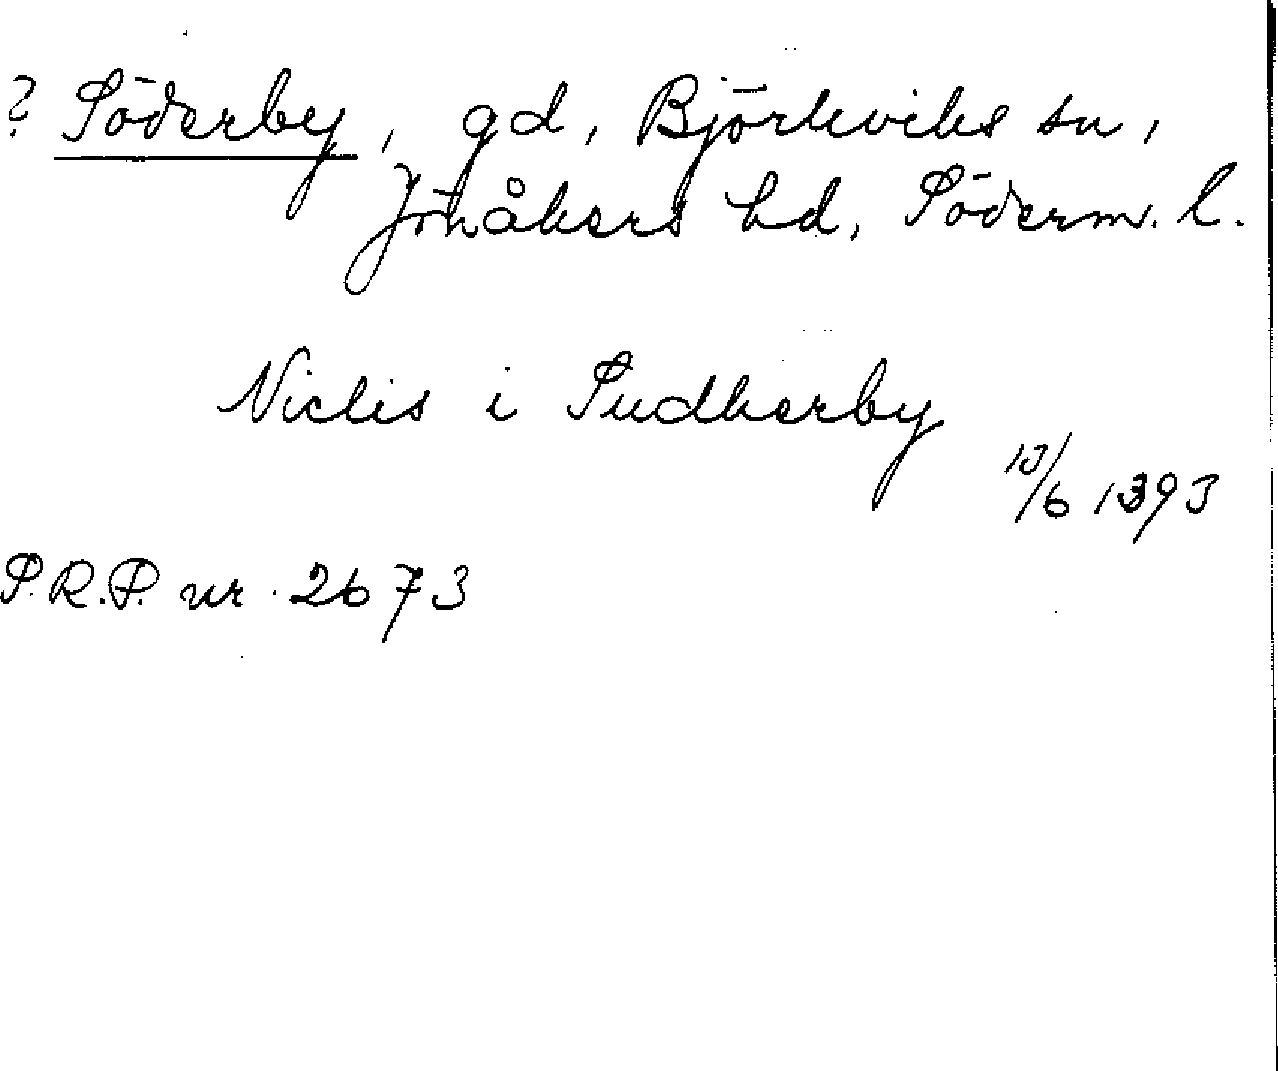 ? Söderby, gd, Björkviks sn,
Jönåkers hd, Söderm. l.
Niclis i Sudherby
13/6 1393
S.R.P. nr. 2673